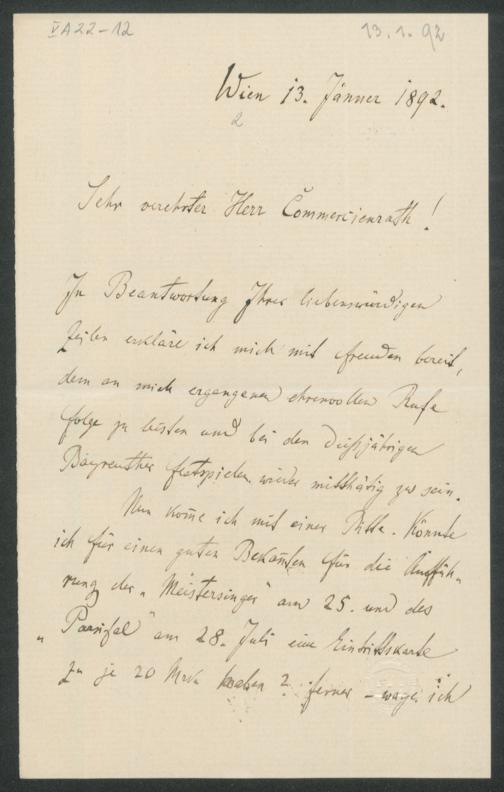 VA22-12
13.1.92
Wien 13. Jänner 1892.
2
Sehr verehrter Herr Commercienrath!
In Beantwortung Ihrer liebenswürdigen
Zeilen erkläre ich mich mit Freuden bereit,
dem an mich ergangenen ehrenvollen Rufe
Folge zu leisten und bei den dießjährigen
Bayreuther Festspielen wieder mitthätig zu sein.
Nun kom̄e ich mit einer Bitte. Könnte
ich für einen guten Bekan̄ten für die Auffüh-
rung der „Meistersinger" am 25. und des
„Parsifal" am 28. Juli eine Eintrittskarte
zu je 20 Mark haben? Ferner – wage ich